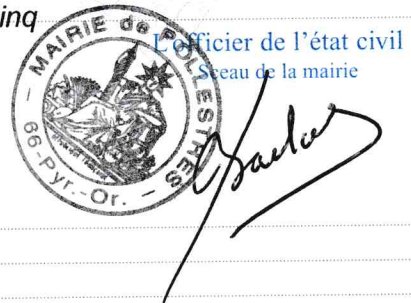 inq
L'officier de l'état civil
Sceau de la mairie
MAIRIE de POLLESTRES
66-Pyr.-Or.